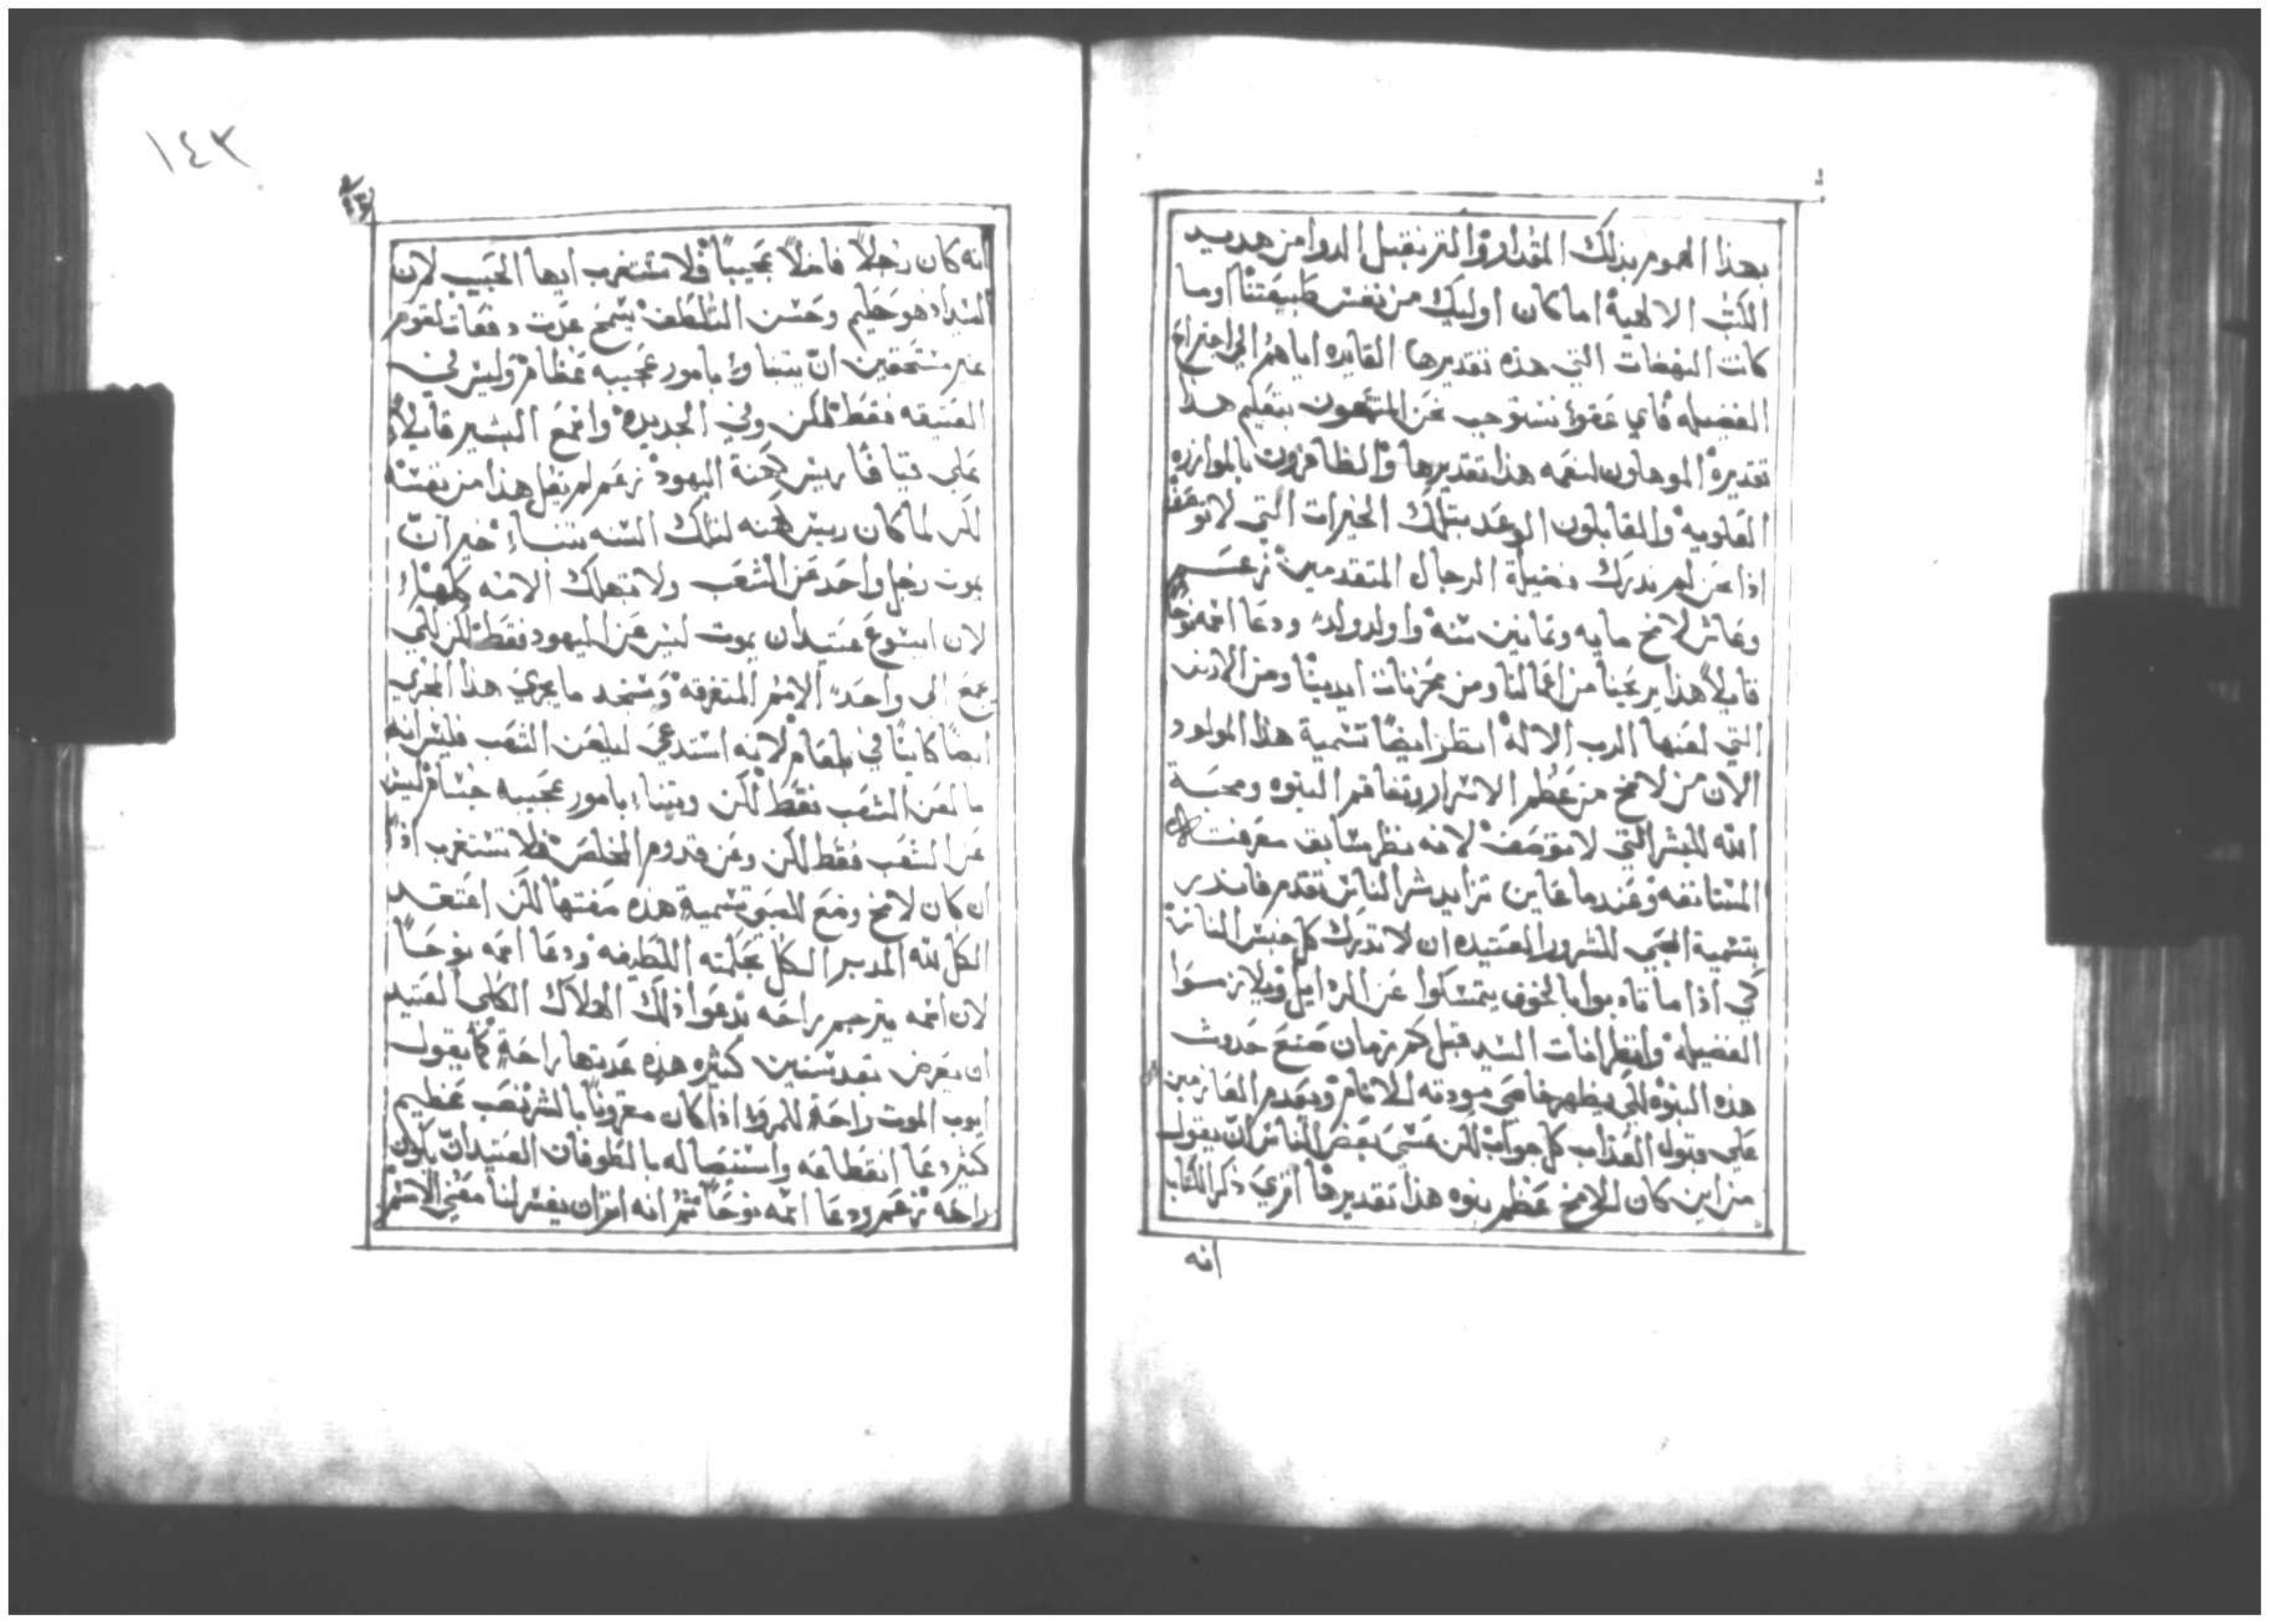 بهذا الهموم بذلك المقدار والتر نقتبل الدوا من هديد
الكتب الالهية اما كان اوليك من نفس طبيعتنا وما
كانت النهضات التي هذه تقديرها القايده اياهم الي اختراع
الفضيله فاي عقوبه نستوجب نحن المتمتعون بتعليم هذا
تقديره الموهلون لنعمه هذا تقديرها والظافرون بالموازره
العلويه والقابلون الوعد بتلك الخيرات التي لا توصف
اذا نحن لم ندرك فضيلة الرجال المتقدمين زعم
وعاش لامخ مايه وثمانين سنه واولد ولد ودعا اسمه نوحا
قايلاً هذا يريحنا من اعمالنا ومن محزنات ايدينا ومن الارض
التي لعنها الرب الاله انظر ايضاً تسمية هذا المولود
الان من لامخ من عظم الاسرار وتفاقم النبوه ومحبة
الله للبشر التي لا توصف لانه نظر بسابق معرفته
المستانفه وعندما عاين تزايد شر الناس تقدم فانذر
بتسمية الصبي الشرور العتيده ان لا تدرك كل جنس الناس
كي اذا ما تادبوا بالخوف يتمسكوا عن الرذايل ويلازموا
الفضيله وانظر اناة السيد قبل كم زمان صنع حدوث
هذه النبوه لكي يظهر خاصي مودته للانام ويعدم العازمين
علي قبول العذاب كل جواب لكن عسي بعض الناس ان يقول
من اين كان للامخ عظم نبوه هذا تقديرها اتري ذكر الكتاب
انه
١٤٣
انه كان رجلاً فاضلاً عجيباً فلا تستغرب ايها الحبيب لان
السيد اذ هو حكيم وحسن التلطف يسمح عدت دفعات لقوم
غير مستحقين ان يتنباوا بامور عجيبه عظام وليس في
العتيقه فقط لكن وفي الجديده واسمع البشير قايلاً
علي قيافا ريس كهنة اليهود زعم لم يقل هذا من نفسه
لكن لما كان ريس كهنه لتلك السنه تنباء خير ان
يموت رجل واحد عن الشعب ولا تهلك الامه كلها
لان ايسوع عتيد ان يموت ليس عن اليهود فقط لكن لكي
يجمع الي واحد الامم المتفرقه وستجد ما يجري هذا المجري
ايضاً كاينا في بلعام لانه استدعي ليلعن الشعب فليس انه
ما لعن الشعب فقط لكن وتنباء بامور عجيبه جسام ليس
عن الشعب فقط لكن وعن قدوم المخلص فلا تستغرب اذاً
ان كان لامخ وضع للصبي تسمية هذه صفتها لكن اعتقد
الكل لله المدبر الكل بحكمته اللطيفه ودعا اسمه نوحاً
لان اسمه يترجم راحه تدعوا ذلك الهلاك الكلي العتيد
ان يعرض بعد سنين كثيره هذه عدتها راحة كما يقول
ايوب الموت راحة للمرو اذا كان مقروناً بالشر نصب عظيم
كثير دعا انقطاعه واستيصاله بالطوفان العتيد ان يكون
راحه زعم ودعا اسمه نوحاً ثم انه اثر ان يفسر لنا معني الاسم